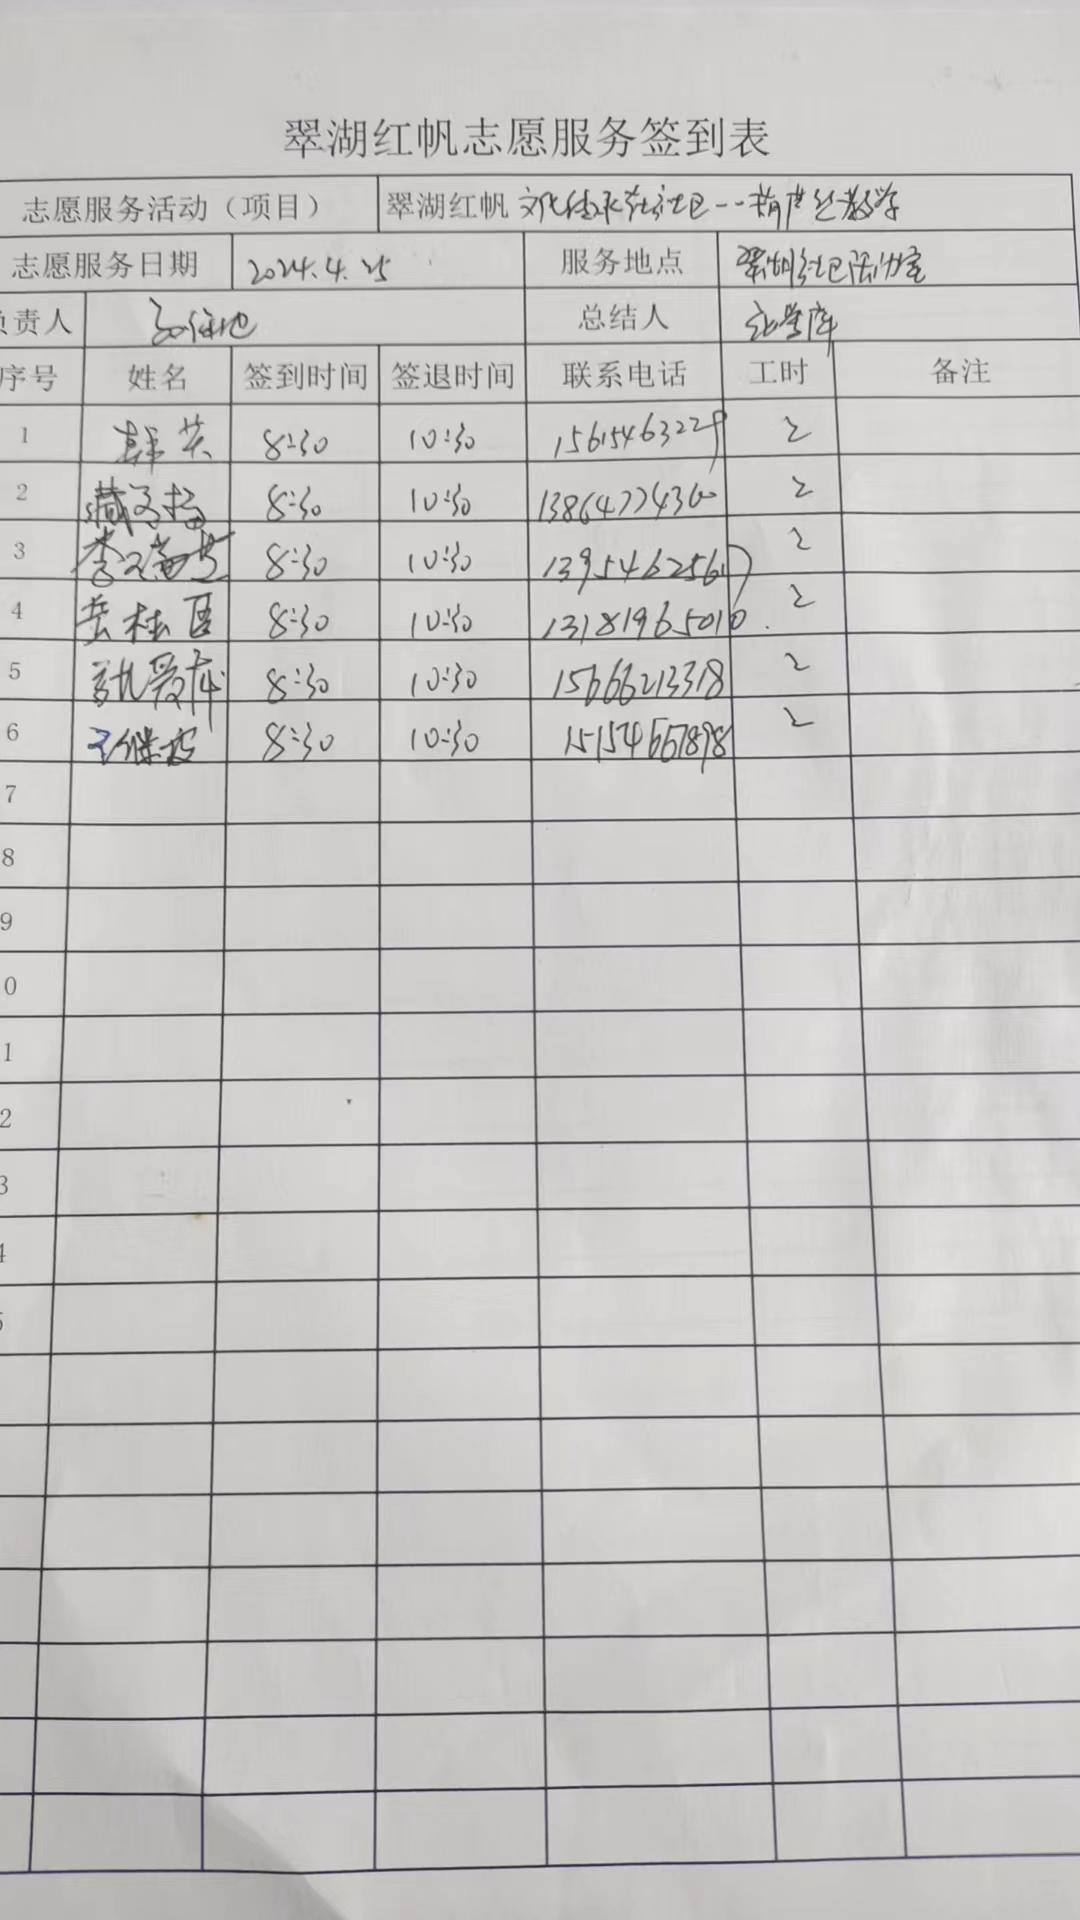 翠湖红帆志愿服务签到表
志愿服务活动（项目） 翠湖红帆 文化传承在社区--葫芦丝教学
志愿服务日期 2024.4.25 服务地点 翠湖社区活动室
负责人 总结人
序号 姓名 签到时间 签退时间 联系电话 工时 备注
1 韩英 8:30 10:30 15615463229 2
2 8:30 10:30 13864772436 2
3 李 8:30 10:30 13954625617 2
4 岳桂 8:30 10:30 13181965010 2
5 爱 8:30 10:30 15666213378 2
6 王继 8:30 10:30 15154667898 2
7
8
9
0
1
2
3
4
5